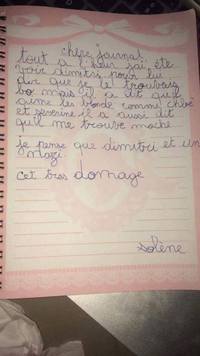 chère journal
tout a l'heur j'ai été
voir dimitri pour lui
dir que je le trouvais
bo mais il a dit quil
aime les blonde comme chloé
et severine il a aussi dit
qu'il me trouve moche
je pense que dimitri et un
nazi
cet tres domage
Solène